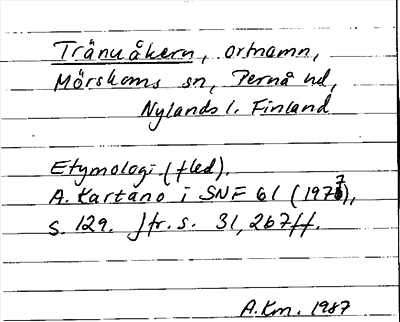 Tränuåkern, ortnamn,
Mörskoms sn, Pernå hd,
Nylands l. Finland
Etymologi (fled).
A. Kartano i SNF 61 (1977),
s. 129. Jfr. s. 31, 267 ff.
A.Km. 1987